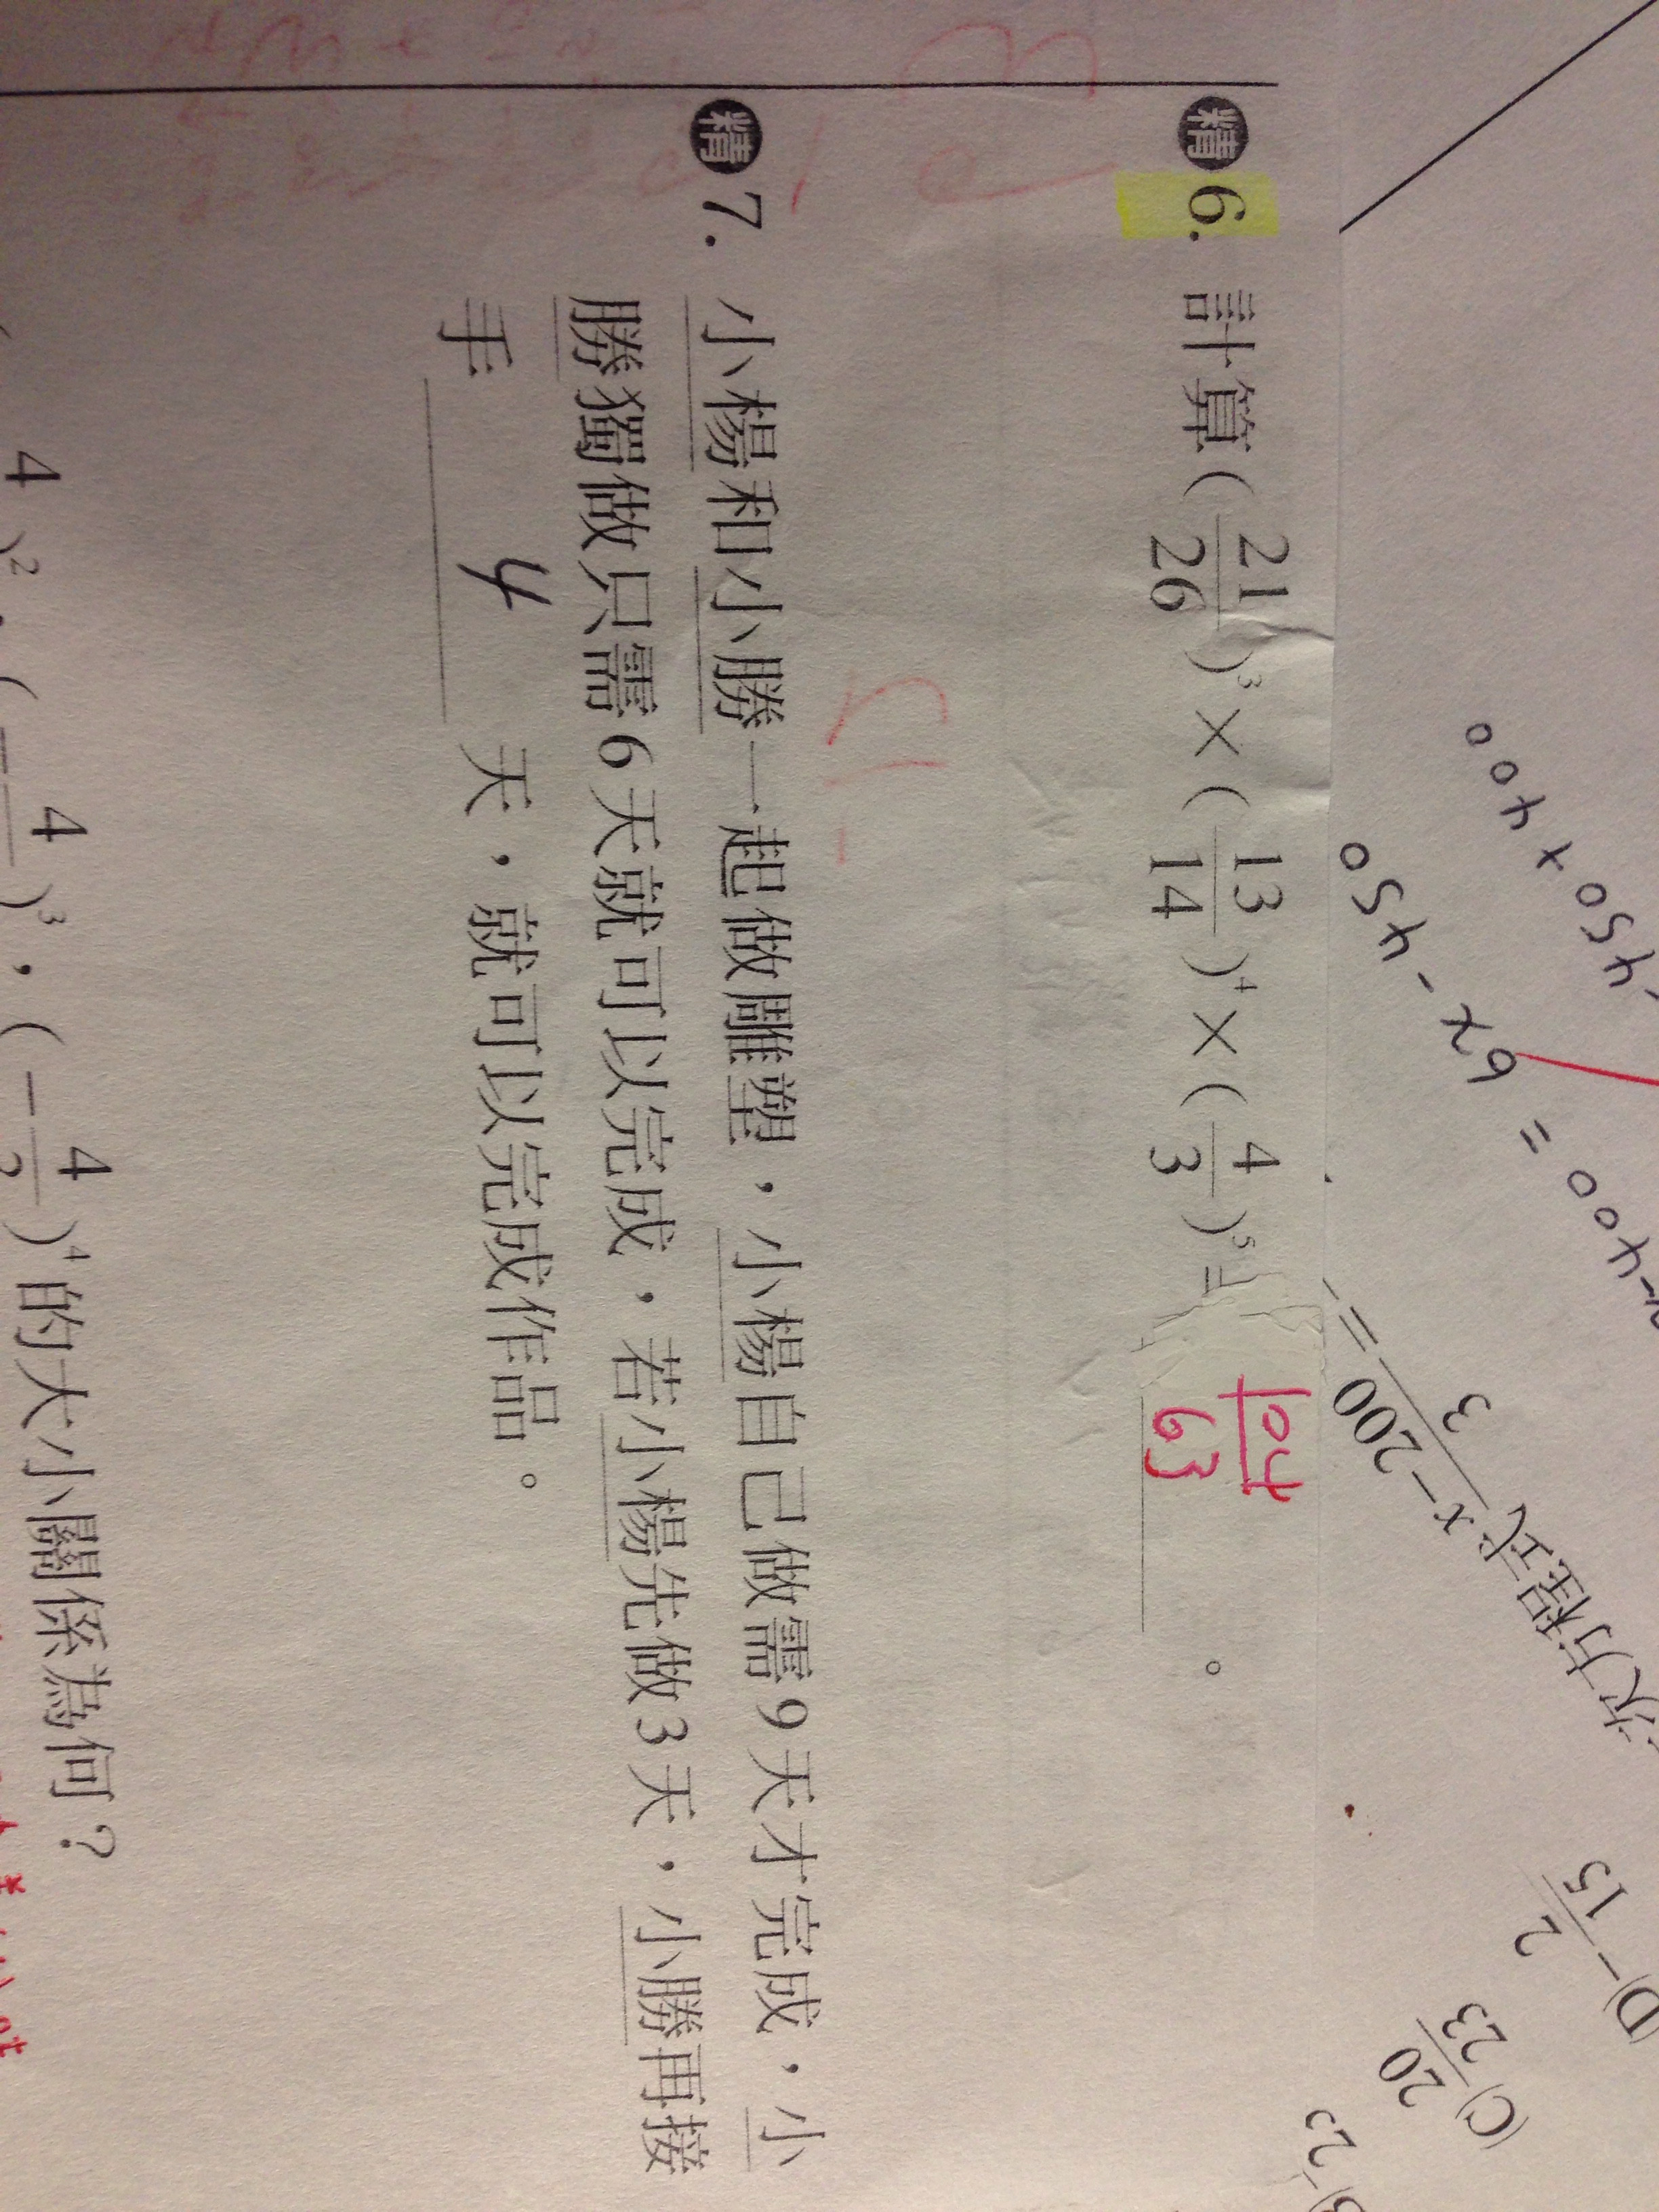 精 6. 計算(21/26)³×(13/14)⁴×(4/3)⁵= 104/63 。
精 7. 小楊和小勝一起做雕塑，小楊自己做需9天才完成，小
勝獨做只需6天就可以完成，若小楊先做3天，小勝再接
手 4 天，就可以完成作品。
4 )²，(- 4 )³，(- 4 )⁴的大小關係為何？
-450x400
6x-450
=
x-400
= x-200/3
次方程式
(D)-2/15
(C)20/23